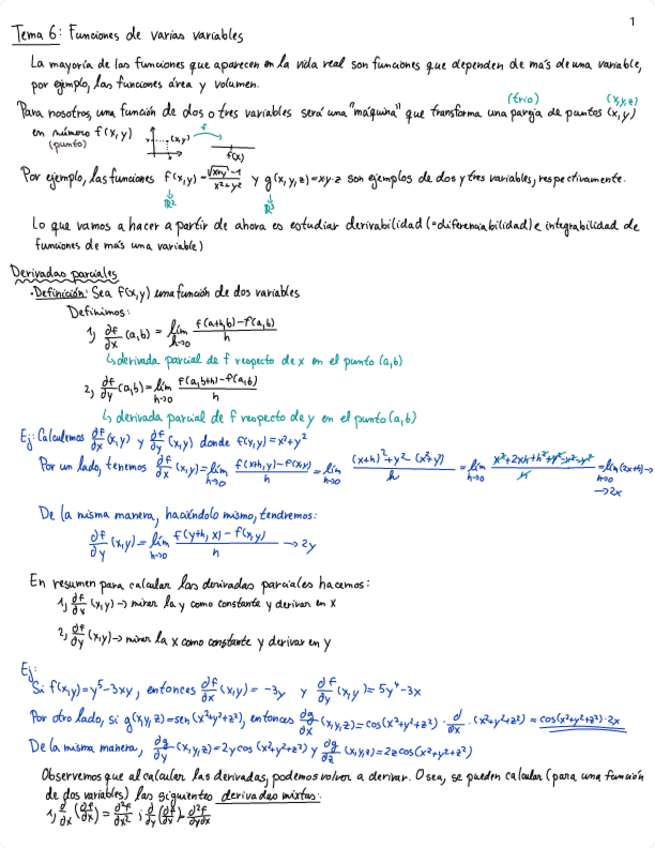 1
Tema 6: Funciones de varias variables
La mayoría de las funciones que aparecen en la vida real son funciones que dependen de más de una variable,
por ejemplo, las funciones área y volumen.
(trío) (x,y,z)
Para nosotros, una función de dos o tres variables será una "máquina" que transforma una pareja de puntos (x,y)
en número f(x,y) (x,y) f f(x)
(punto)
Por ejemplo, las funciones f(x,y) = √(x+y²-1)/(x²+y²) y g(x,y,z)=xy-z son ejemplos de dos y tres variables, respectivamente.
ℝ² ℝ³
Lo que vamos a hacer a partir de ahora es estudiar derivabilidad (=diferenciabilidad) e integrabilidad de
funciones de más una variable)
Derivadas parciales
·Definición: Sea f(x,y) una función de dos variables
Definimos:
1) ∂f/∂x (a,b) = lím h→0 (f(a+h,b)-f(a,b))/h
↳ derivada parcial de f respecto de x en el punto (a,b)
2) ∂f/∂y (a,b) = lím h→0 (f(a,b+h)-f(a,b))/h
↳ derivada parcial de f respecto de y en el punto (a,b)
Ej: Calculemos ∂f/∂x (x,y) y ∂f/∂y (x,y) donde f(x,y)=x²+y²
Por un lado, tenemos ∂f/∂x (x,y) = lím h→0 (f(x+h,y)-f(x,y))/h = lím h→0 ((x+h)²+y²-(x²+y²))/h = lím h→0 (x²+2xh+h²+y²-x²-y²)/h = lím h→0 (2x+h) →
→2x
De la misma manera, haciéndolo mismo, tendremos:
∂f/∂y (x,y) = lím h→0 (f(y+h,x)-f(x,y))/h → 2y
En resumen para calcular las derivadas parciales hacemos:
1) ∂f/∂x (x,y) → mirar la y como constante y derivar en x
2) ∂f/∂y (x,y) → mirar la x como constante y derivar en y
Ej:
Si f(x,y)=y⁵-3xy, entonces ∂f/∂x (x,y) = -3y y ∂f/∂y (x,y) = 5y⁴-3x
Por otro lado, si g(x,y,z)=sen(x²+y²+z²), entonces ∂g/∂x (x,y,z)=cos(x²+y²+z²) · d/∂x · (x²+y²+z²) = cos(x²+y²+z²)·2x
De la misma manera, ∂g/∂y (x,y,z)=2ycos(x²+y²+z²) y ∂g/∂z (x,y,z)=2zcos(x²+y²+z²)
Observemos que al calcular las derivadas, podemos volver a derivar. O sea, se pueden calcular (para una función
de dos variables) las siguientes derivadas mixtas:
1) ∂/∂x (∂f/∂x) = ∂²f/∂x² ; ∂/∂y (∂f/∂x) = ∂²f/∂y∂x